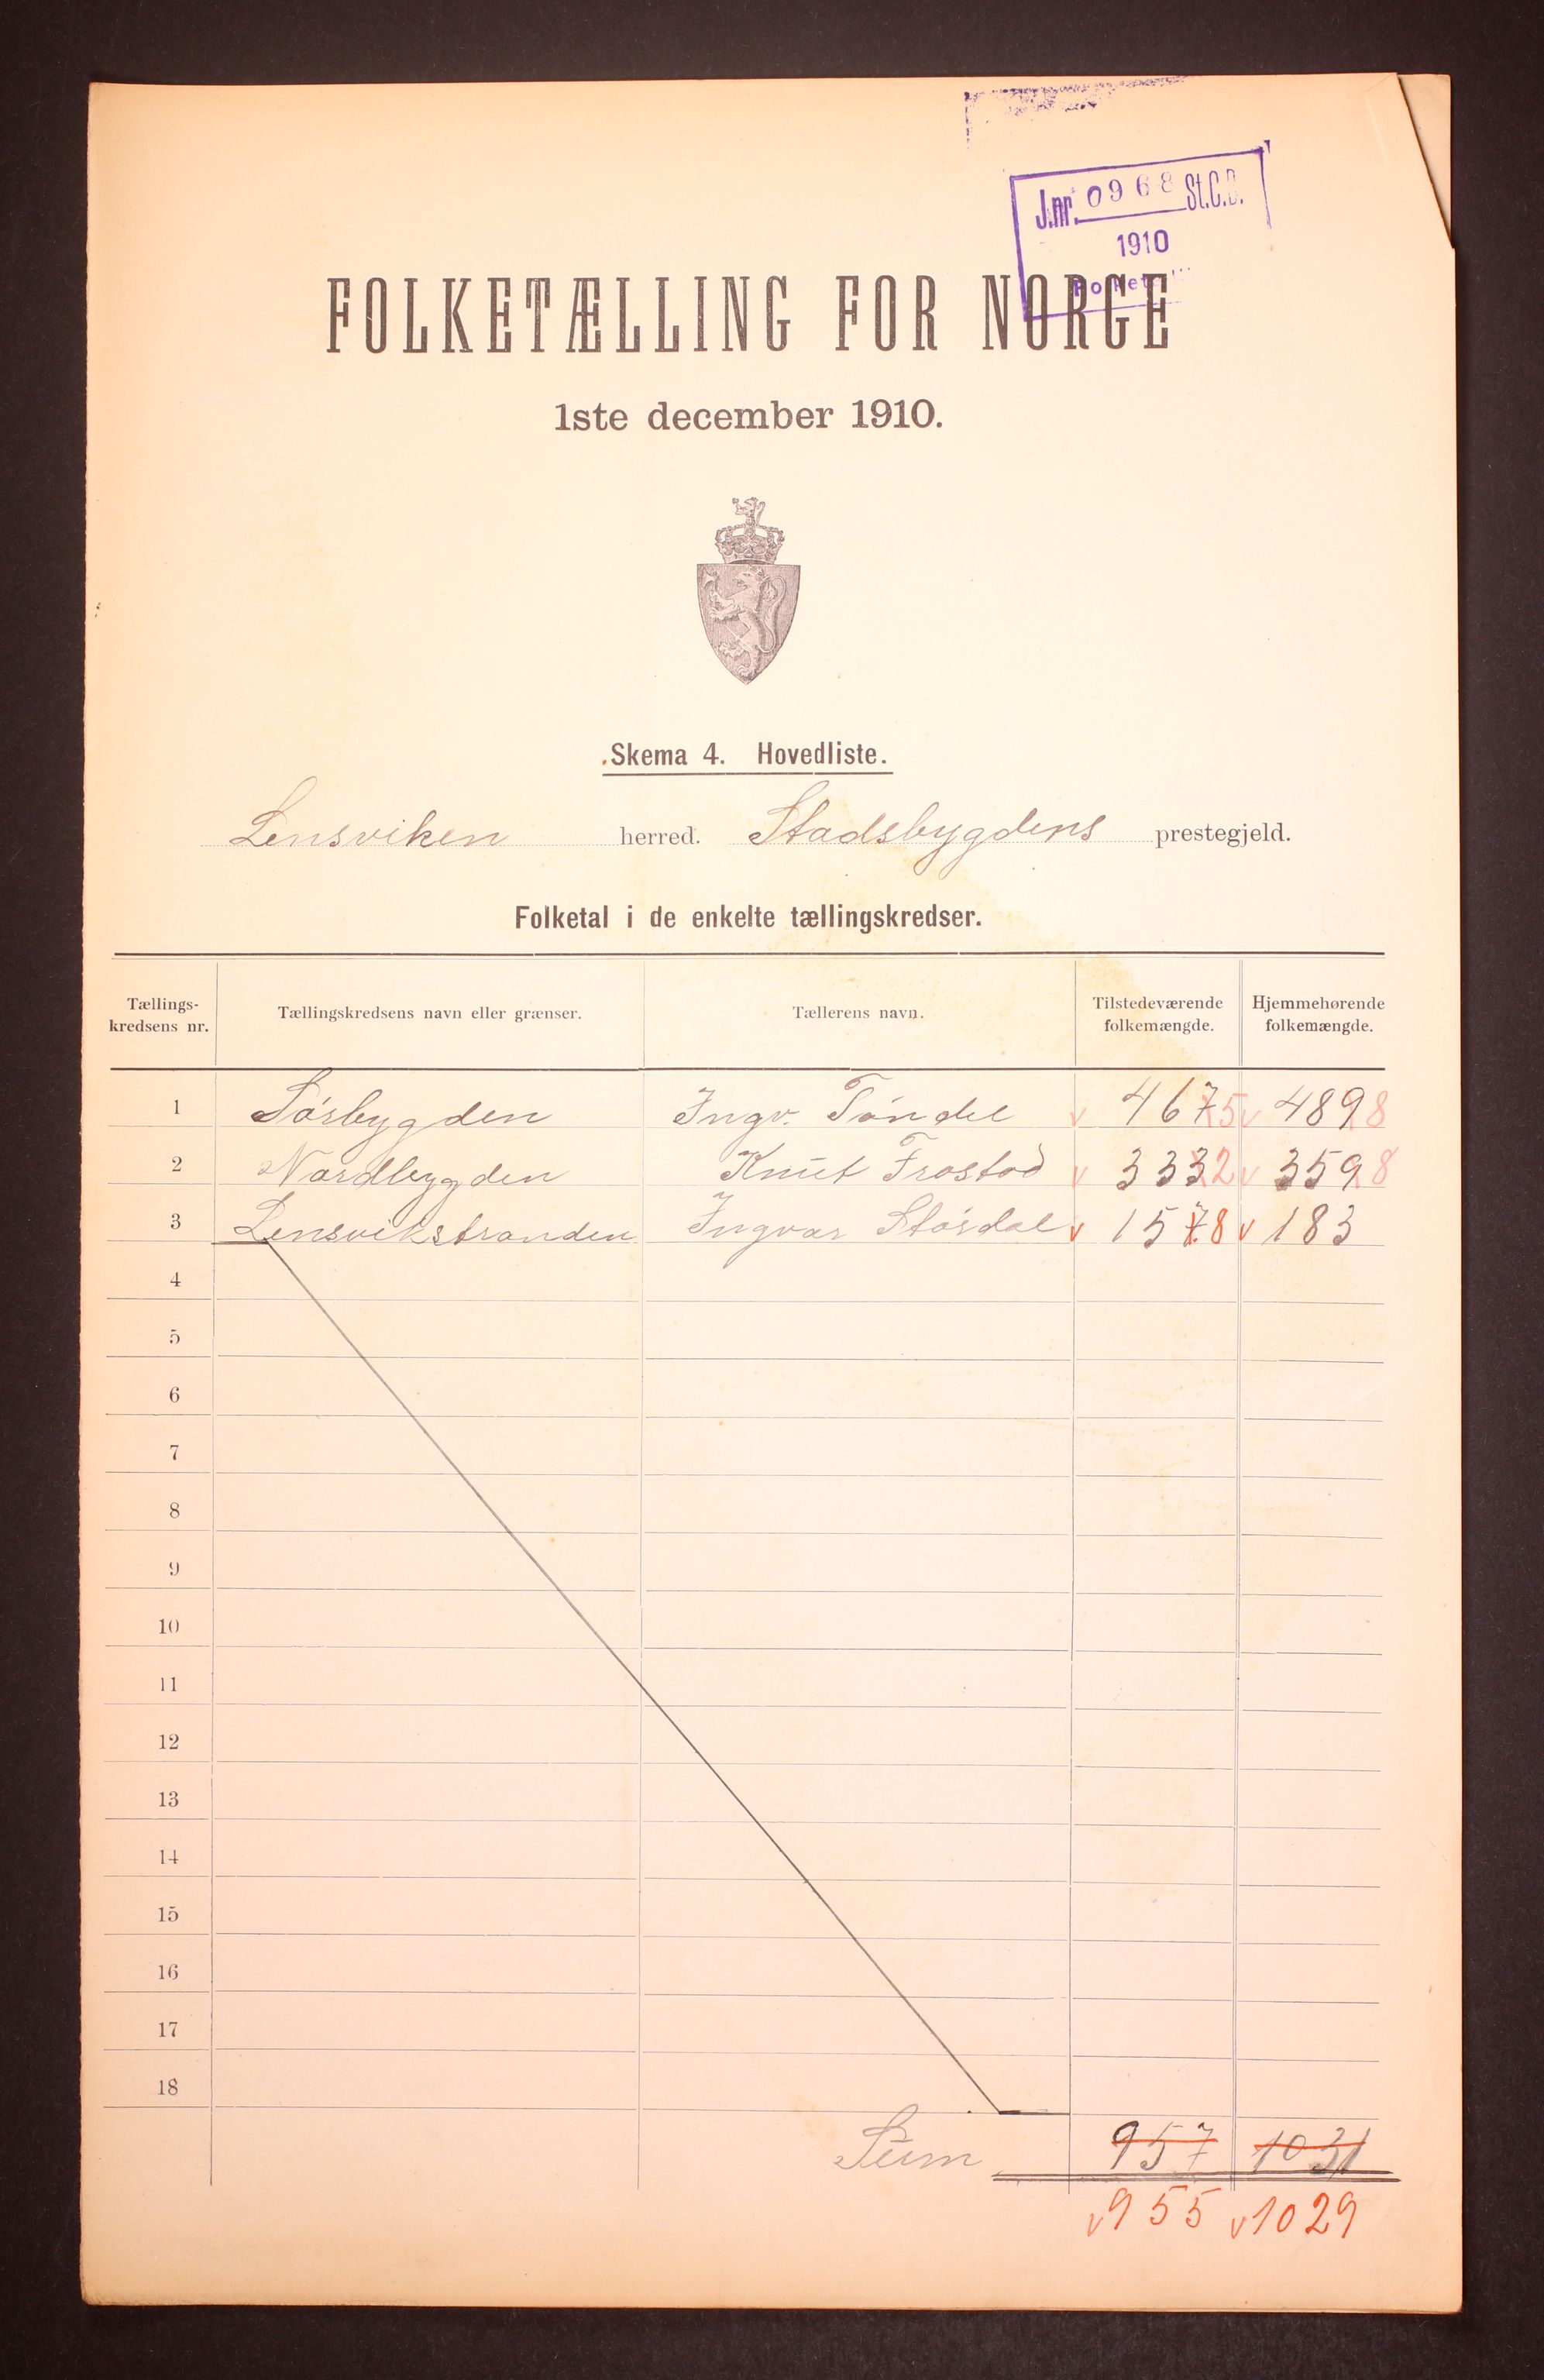 J.nr. 0968 St.C.B.
1910
FOLKETÆLLING FOR NORGE
1ste december 1910.
Skema 4. Hovedliste.
Lensviken herred. Stadsbygdens prestegjeld.
Folketal i de enkelte tællingskredser.
Tællings-kredsens nr. Tællingskredsens navn eller grænser. Tællerens navn. Tilstedeværende folkemængde. Hjemmehørende folkemængde.
1 Sörbygden Ingv. Töndel v 4675 v 4898
2 Nordbygden Knut Frostad v 3332 v 3598
3 Lensvikstranden Ingvar Stördal v 1578 v 183
4
5
6
7
8
9
10
11
12
13
14
15
16
17
18
Sum 957 1031
v 955 v 1029